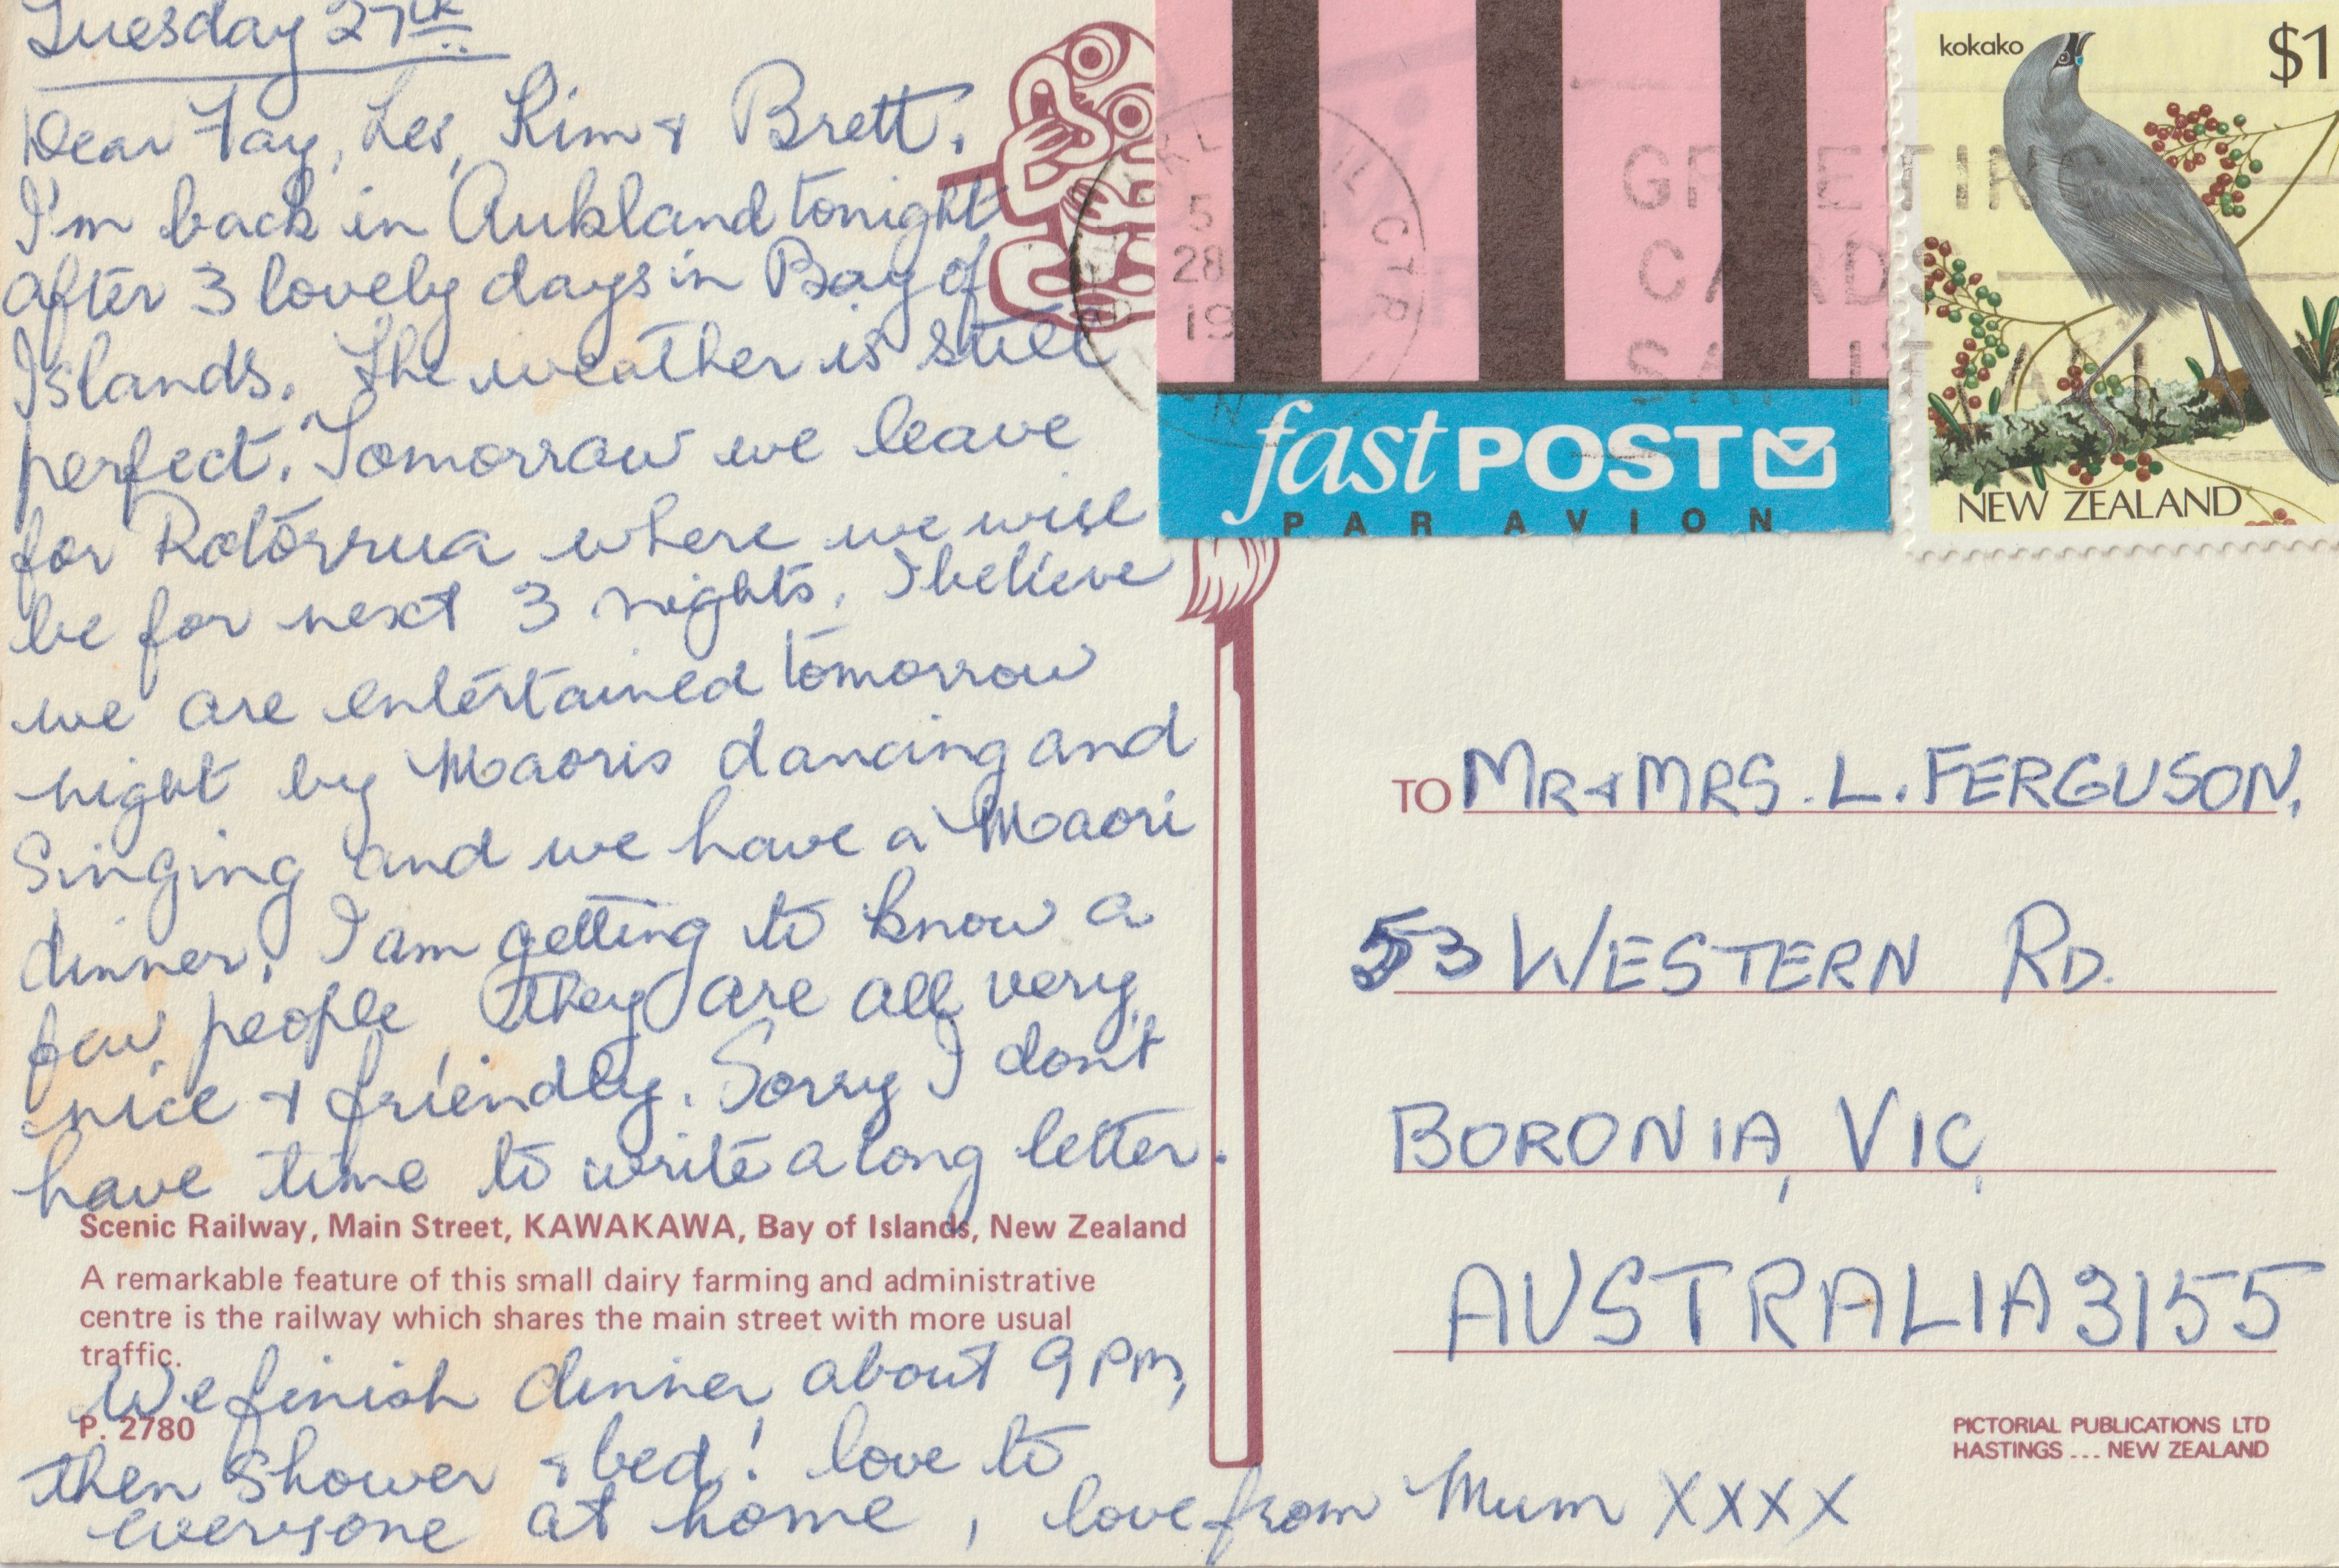 Tuesday 27th
Dear Fay, Les, Kim & Brett.
I'm back in Aukland tonight
after 3 lovely days in Bay of
Islands. The weather is still
perfect. Tomorrow we leave
for Rotorrua where we will
be for next 3 nights. I believe
we are entertained tomorrow
night by Maoris dancing and
Singing and we have a Maori
dinner, I am getting to know a
few people, they are all very
nice & friendly. Sorry I don't
have time to write a long letter.
Scenic Railway, Main Street, KAWAKAWA, Bay of Islands, New Zealand
A remarkable feature of this small dairy farming and administrative
centre is the railway which shares the main street with more usual
traffic.
We finish dinner about 9 pm,
P. 2780
then Shower & bed! love to
everyone at home, love from Mum XXXX
5
28
19
GREETING
CARDS
fastPOST
PAR AVION
kokako
$1
NEW ZEALAND
TO MR & MRS. L. FERGUSON,
53 WESTERN RD.
BORONIA, VIC,
AUSTRALIA 3155
PICTORIAL PUBLICATIONS LTD
HASTINGS ... NEW ZEALAND